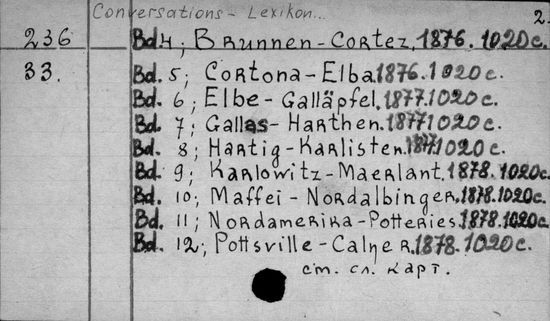 Conversations-Lexikon... 2.
236 Bd 4; Brunnen-Cortez, 1876. 1020c.
33. Bd. 5; Cortona-Elba 1876. 1020c.
Bd. 6; Elbe-Galläpfel, 1877. 1020c.
Bd. 7; Gallas-Harthen. 1877 1020c.
Bd. 8; Hartig-Karlisten. 1877 1020c.
Bd. 9; Karlowitz-Maerlant. 1878. 1020c.
Bd. 10; Maffei-Nordalbinger. 1878. 1020c.
Bd. 11; Nordamerika-Potteries. 1878. 1020c.
Bd. 12; Pottsville-Calner. 1878. 1020c.
см. сл. карт.